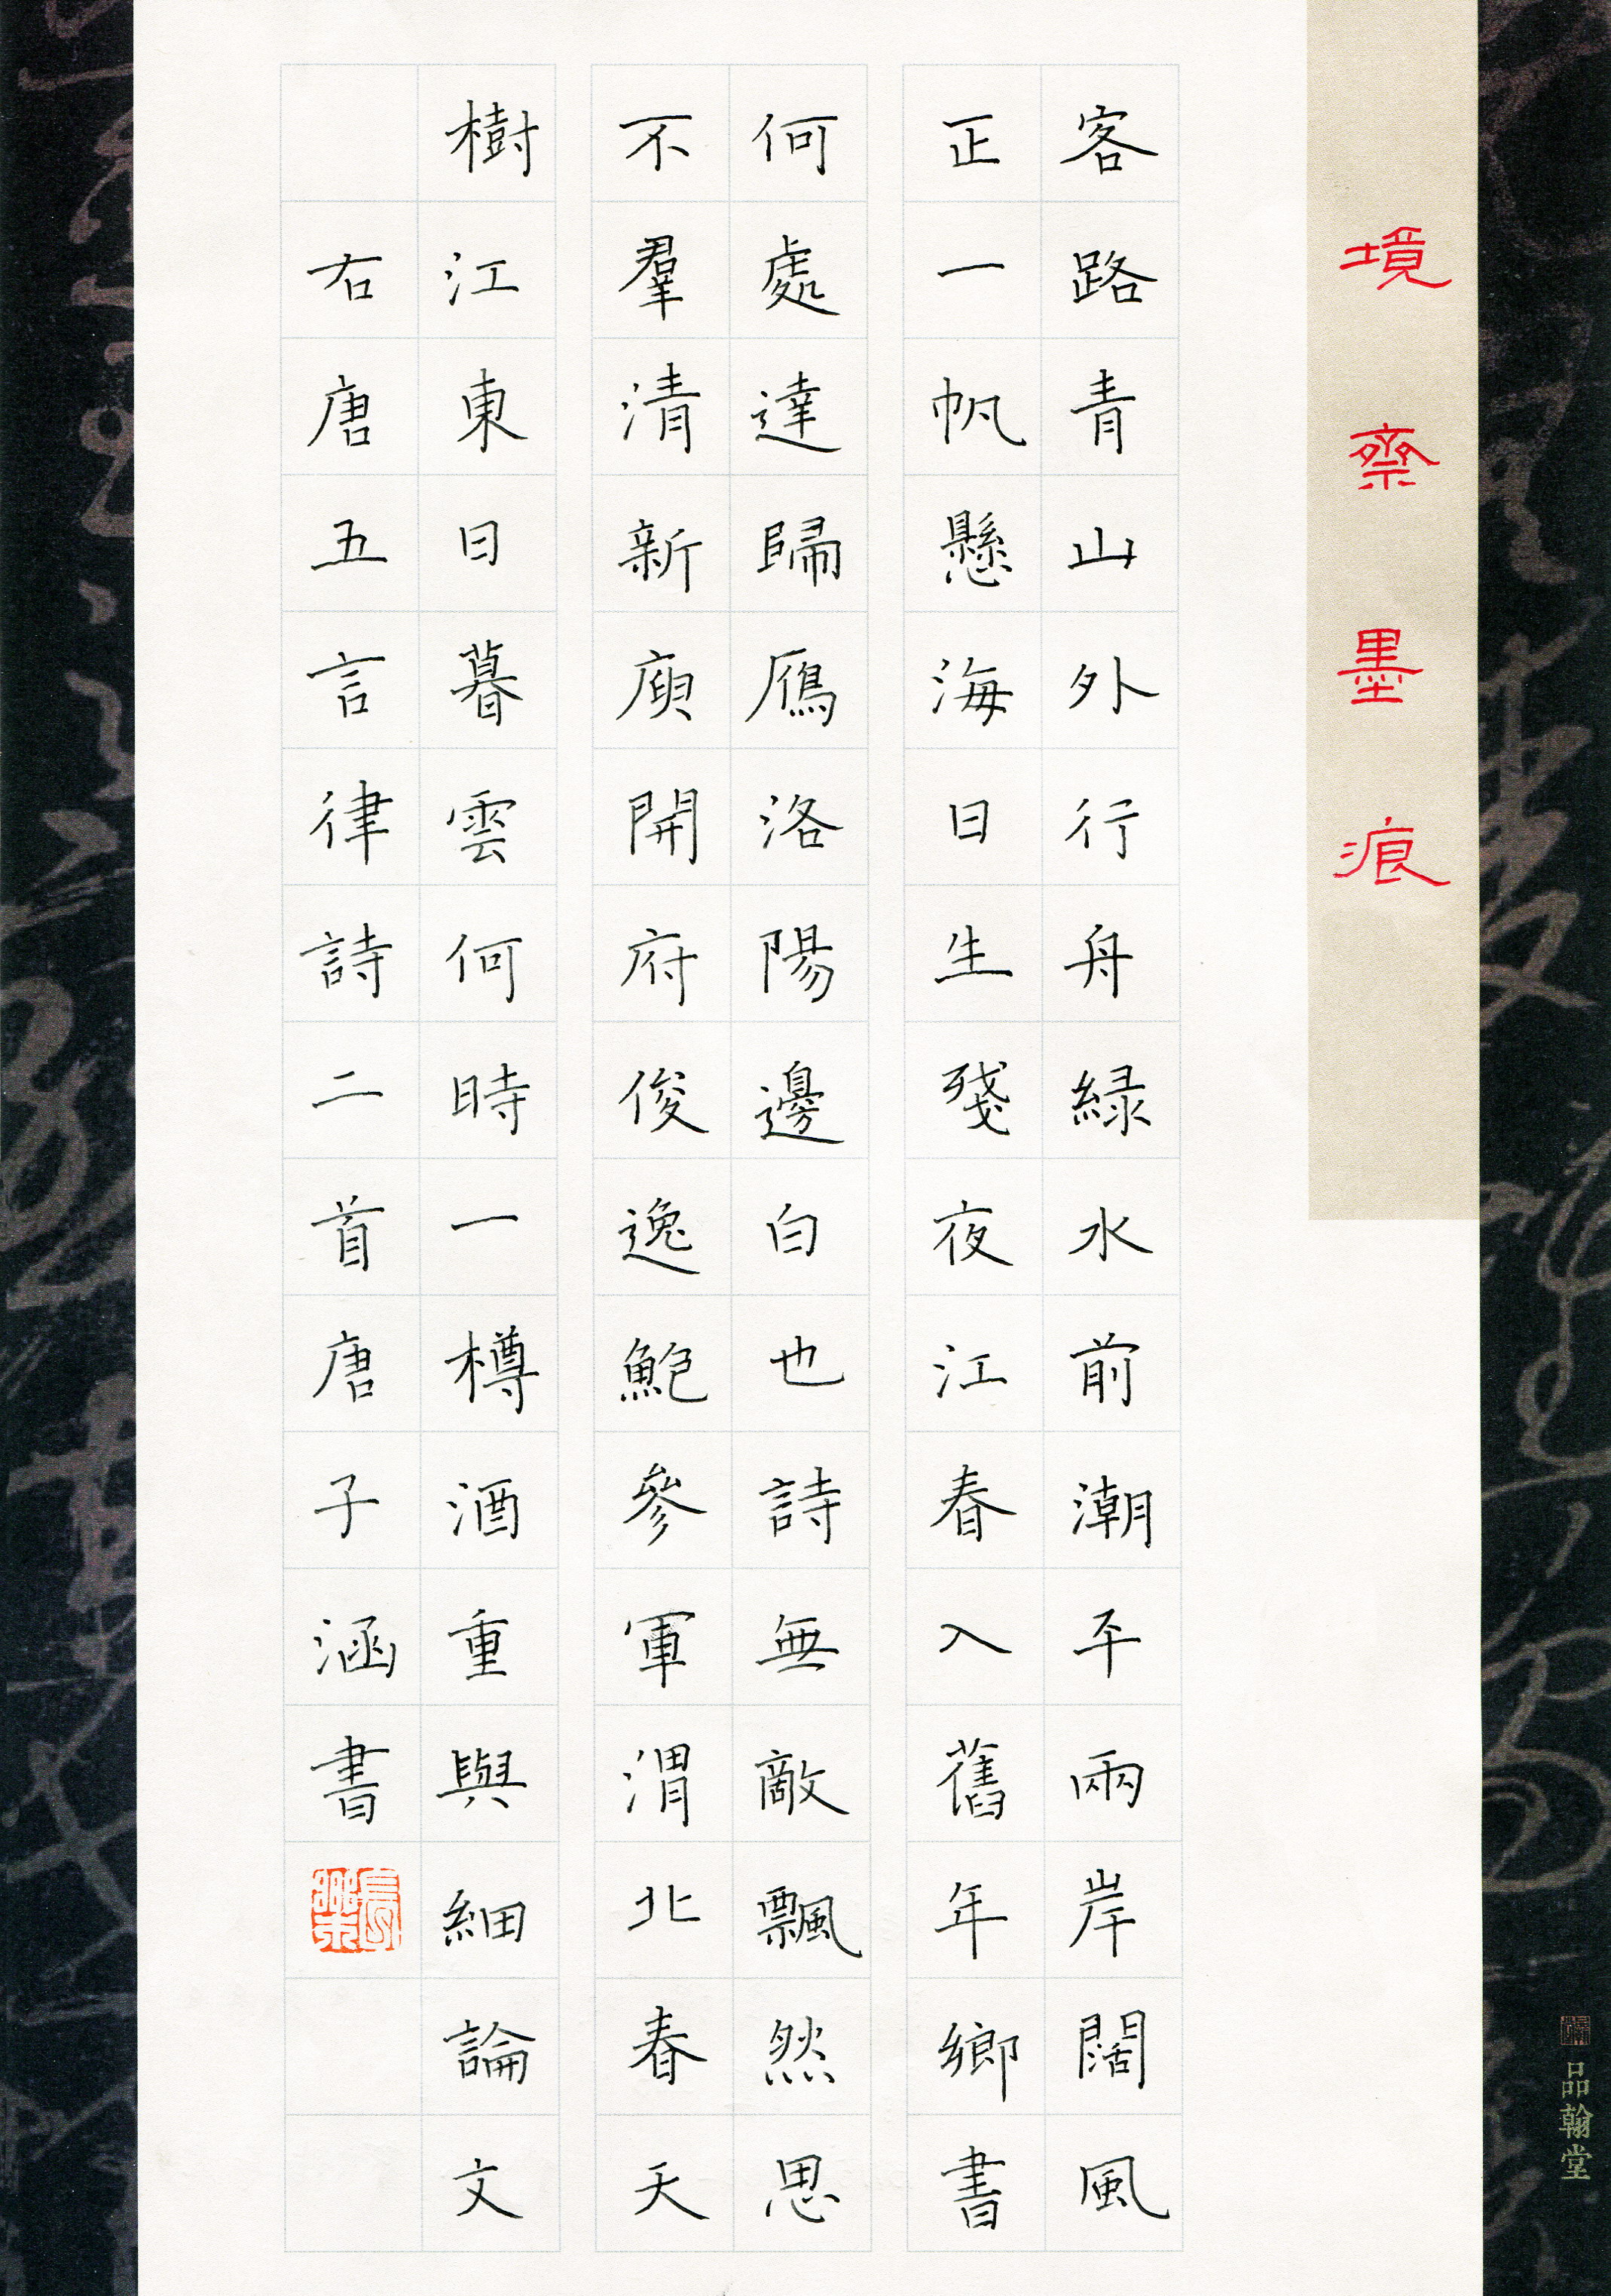 境齋墨痕
客路青山外行舟緑水前潮平兩岸闊風
正一帆懸海日生殘夜江春入舊年鄉書
何處達歸鴈洛陽邊白也詩無敵飄然思
不羣清新庾開府俊逸鮑參軍渭北春天
樹江東日暮雲何時一樽酒重與細論文
右唐五言律詩二首唐子涵書
品翰堂